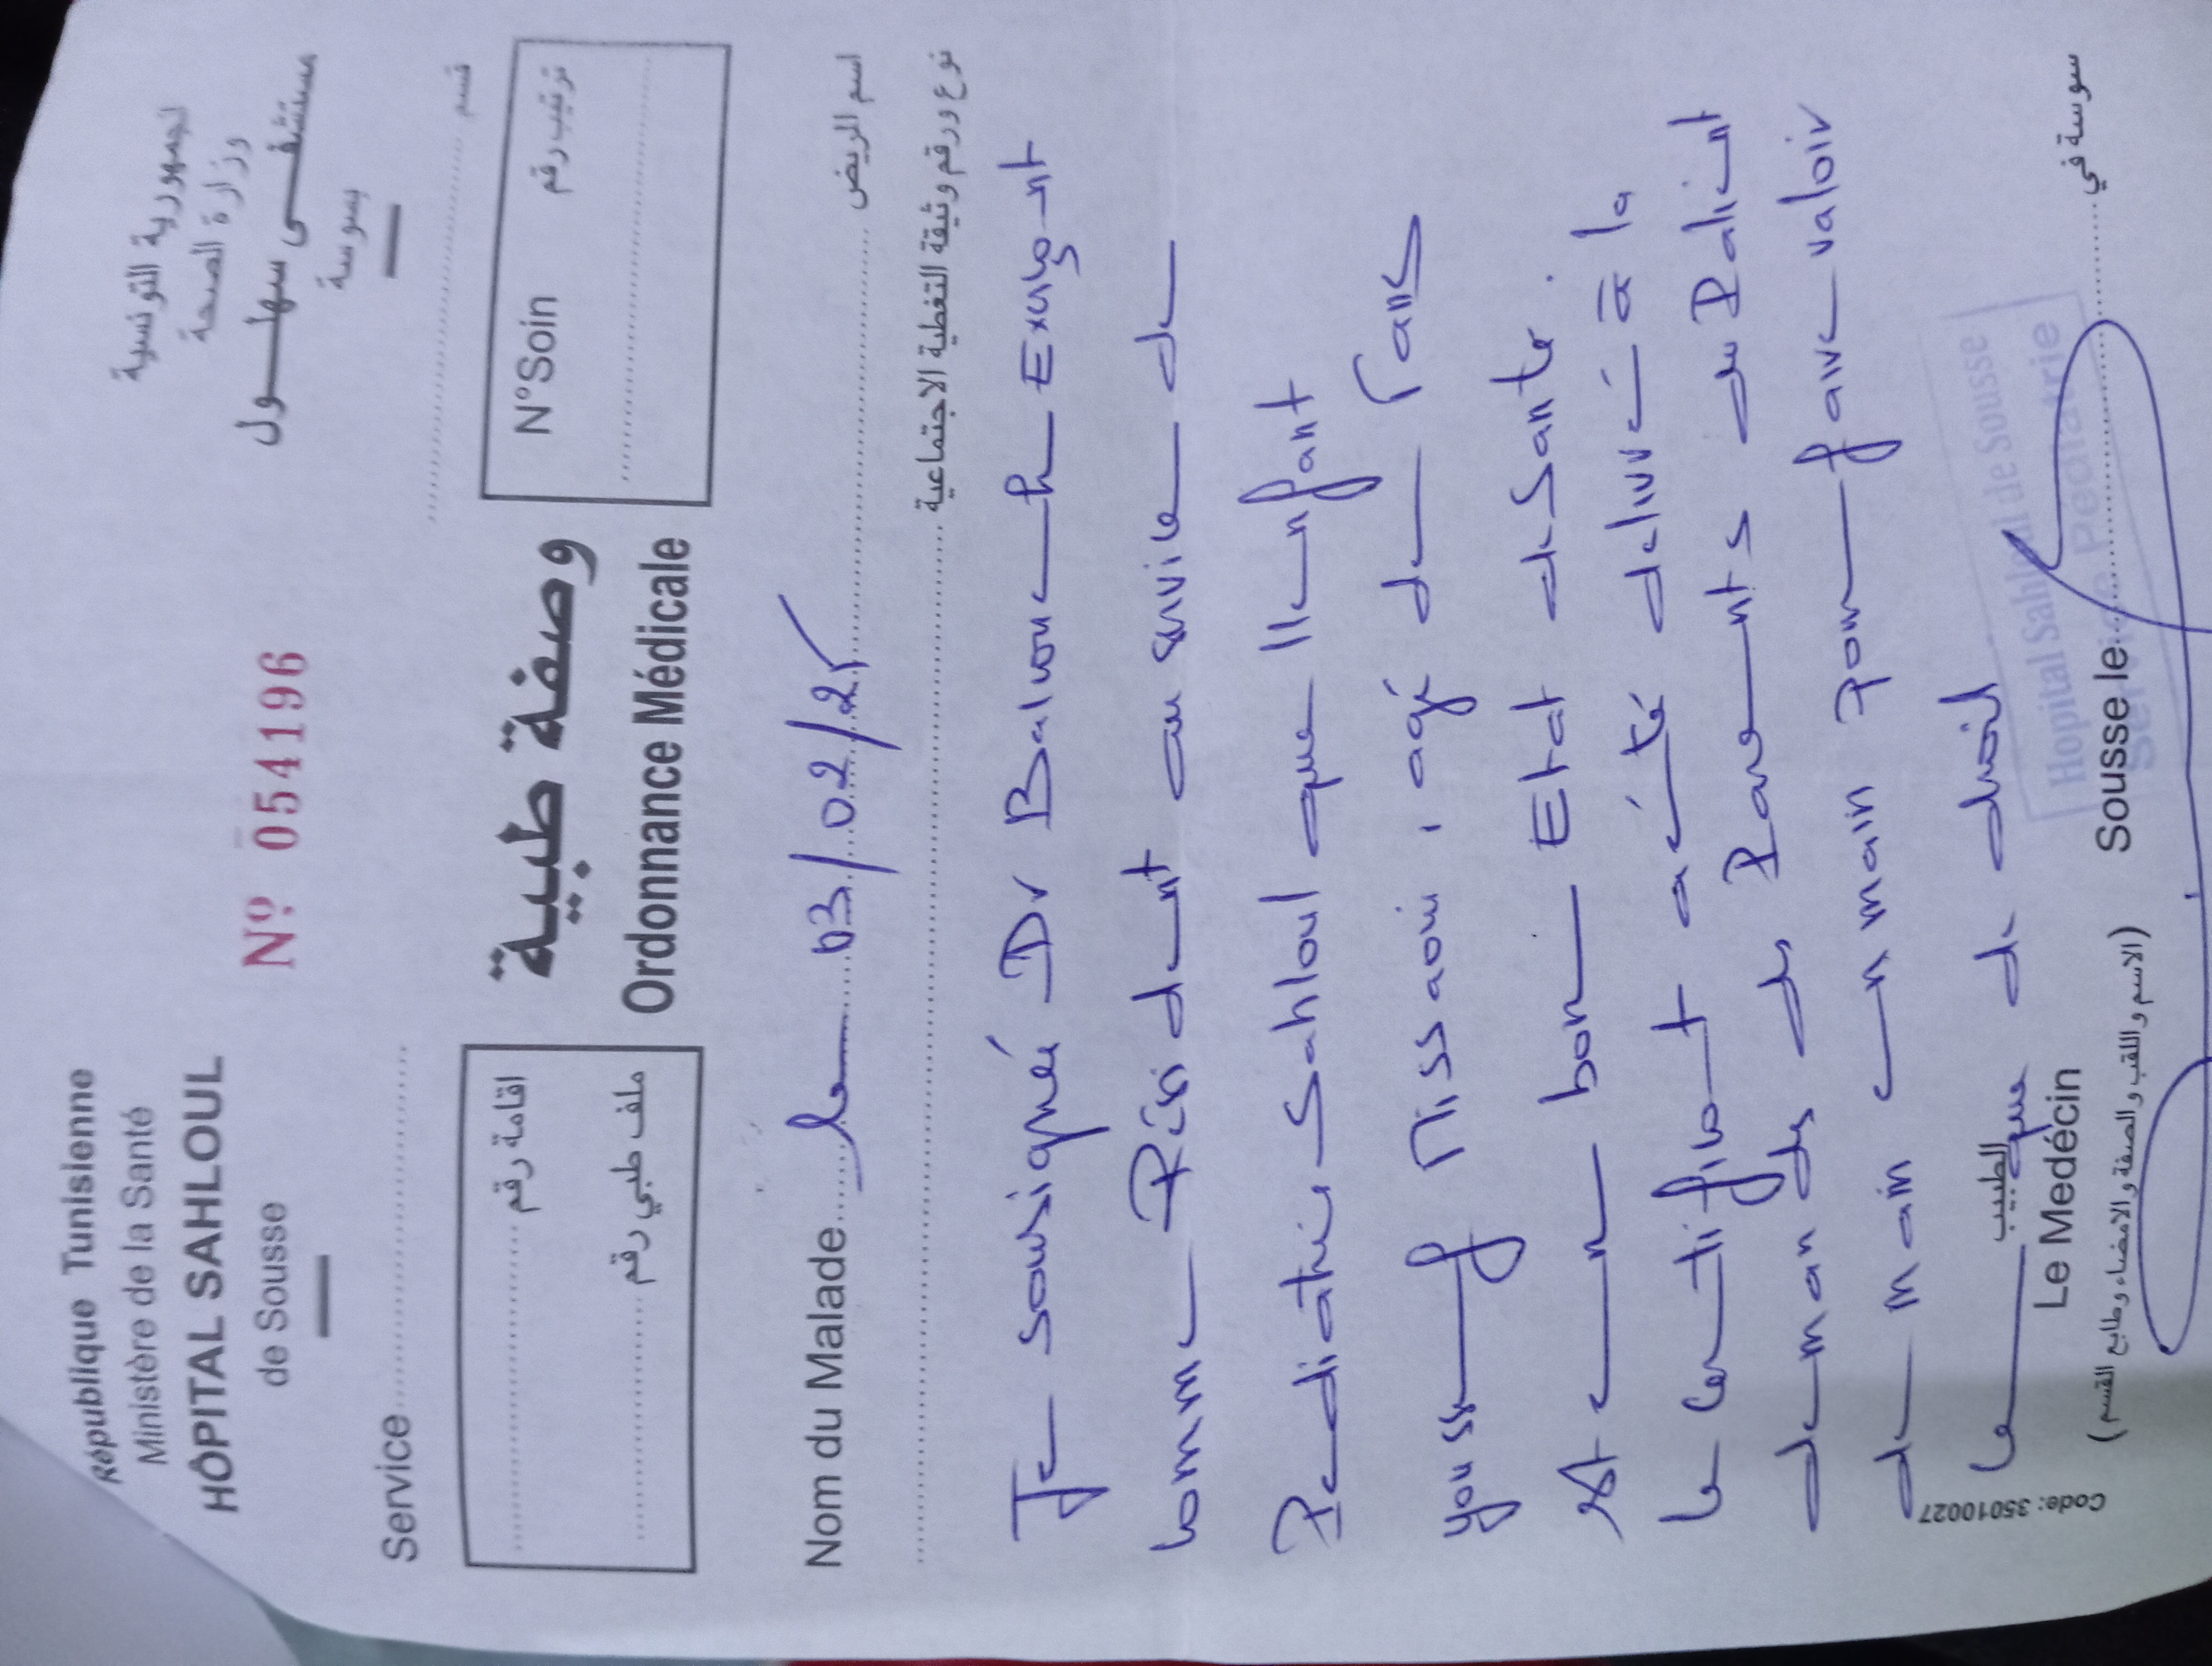 République Tunisienne
Ministère de la Santé
HÔPITAL SAHLOUL
de Sousse
الجمهورية التونسية
وزارة الصحة
مستشفى سهلول
بسوسة
Nº 054196
Service
قسم
اقامة رقم
ملف طبي رقم
وصفة طبية
Ordonnance Médicale
N°Soin ترتيب رقم
Nom du Malade اسم المريض
le 03/02/25
نوع ورقم وثيقة التغطية الاجتماعية
Je soussigné Dr Exerçant
comme Résident au service de
Pediatrie Sahloul que l'enfant
youssef Missaoui, agé de ans
est en bon Etat de Sante.
le Certificat a été delivré à la
demande des Parents du Patient
de main en main pour faire valoir
ce que de droit
الطبيب
Le Medécin
(الاسم واللقب والصفة والامضاء وطابع القسم)
Hopital Sahloul de Sousse
Service Pediatrie
Sousse le سوسة في
Code: 35010027